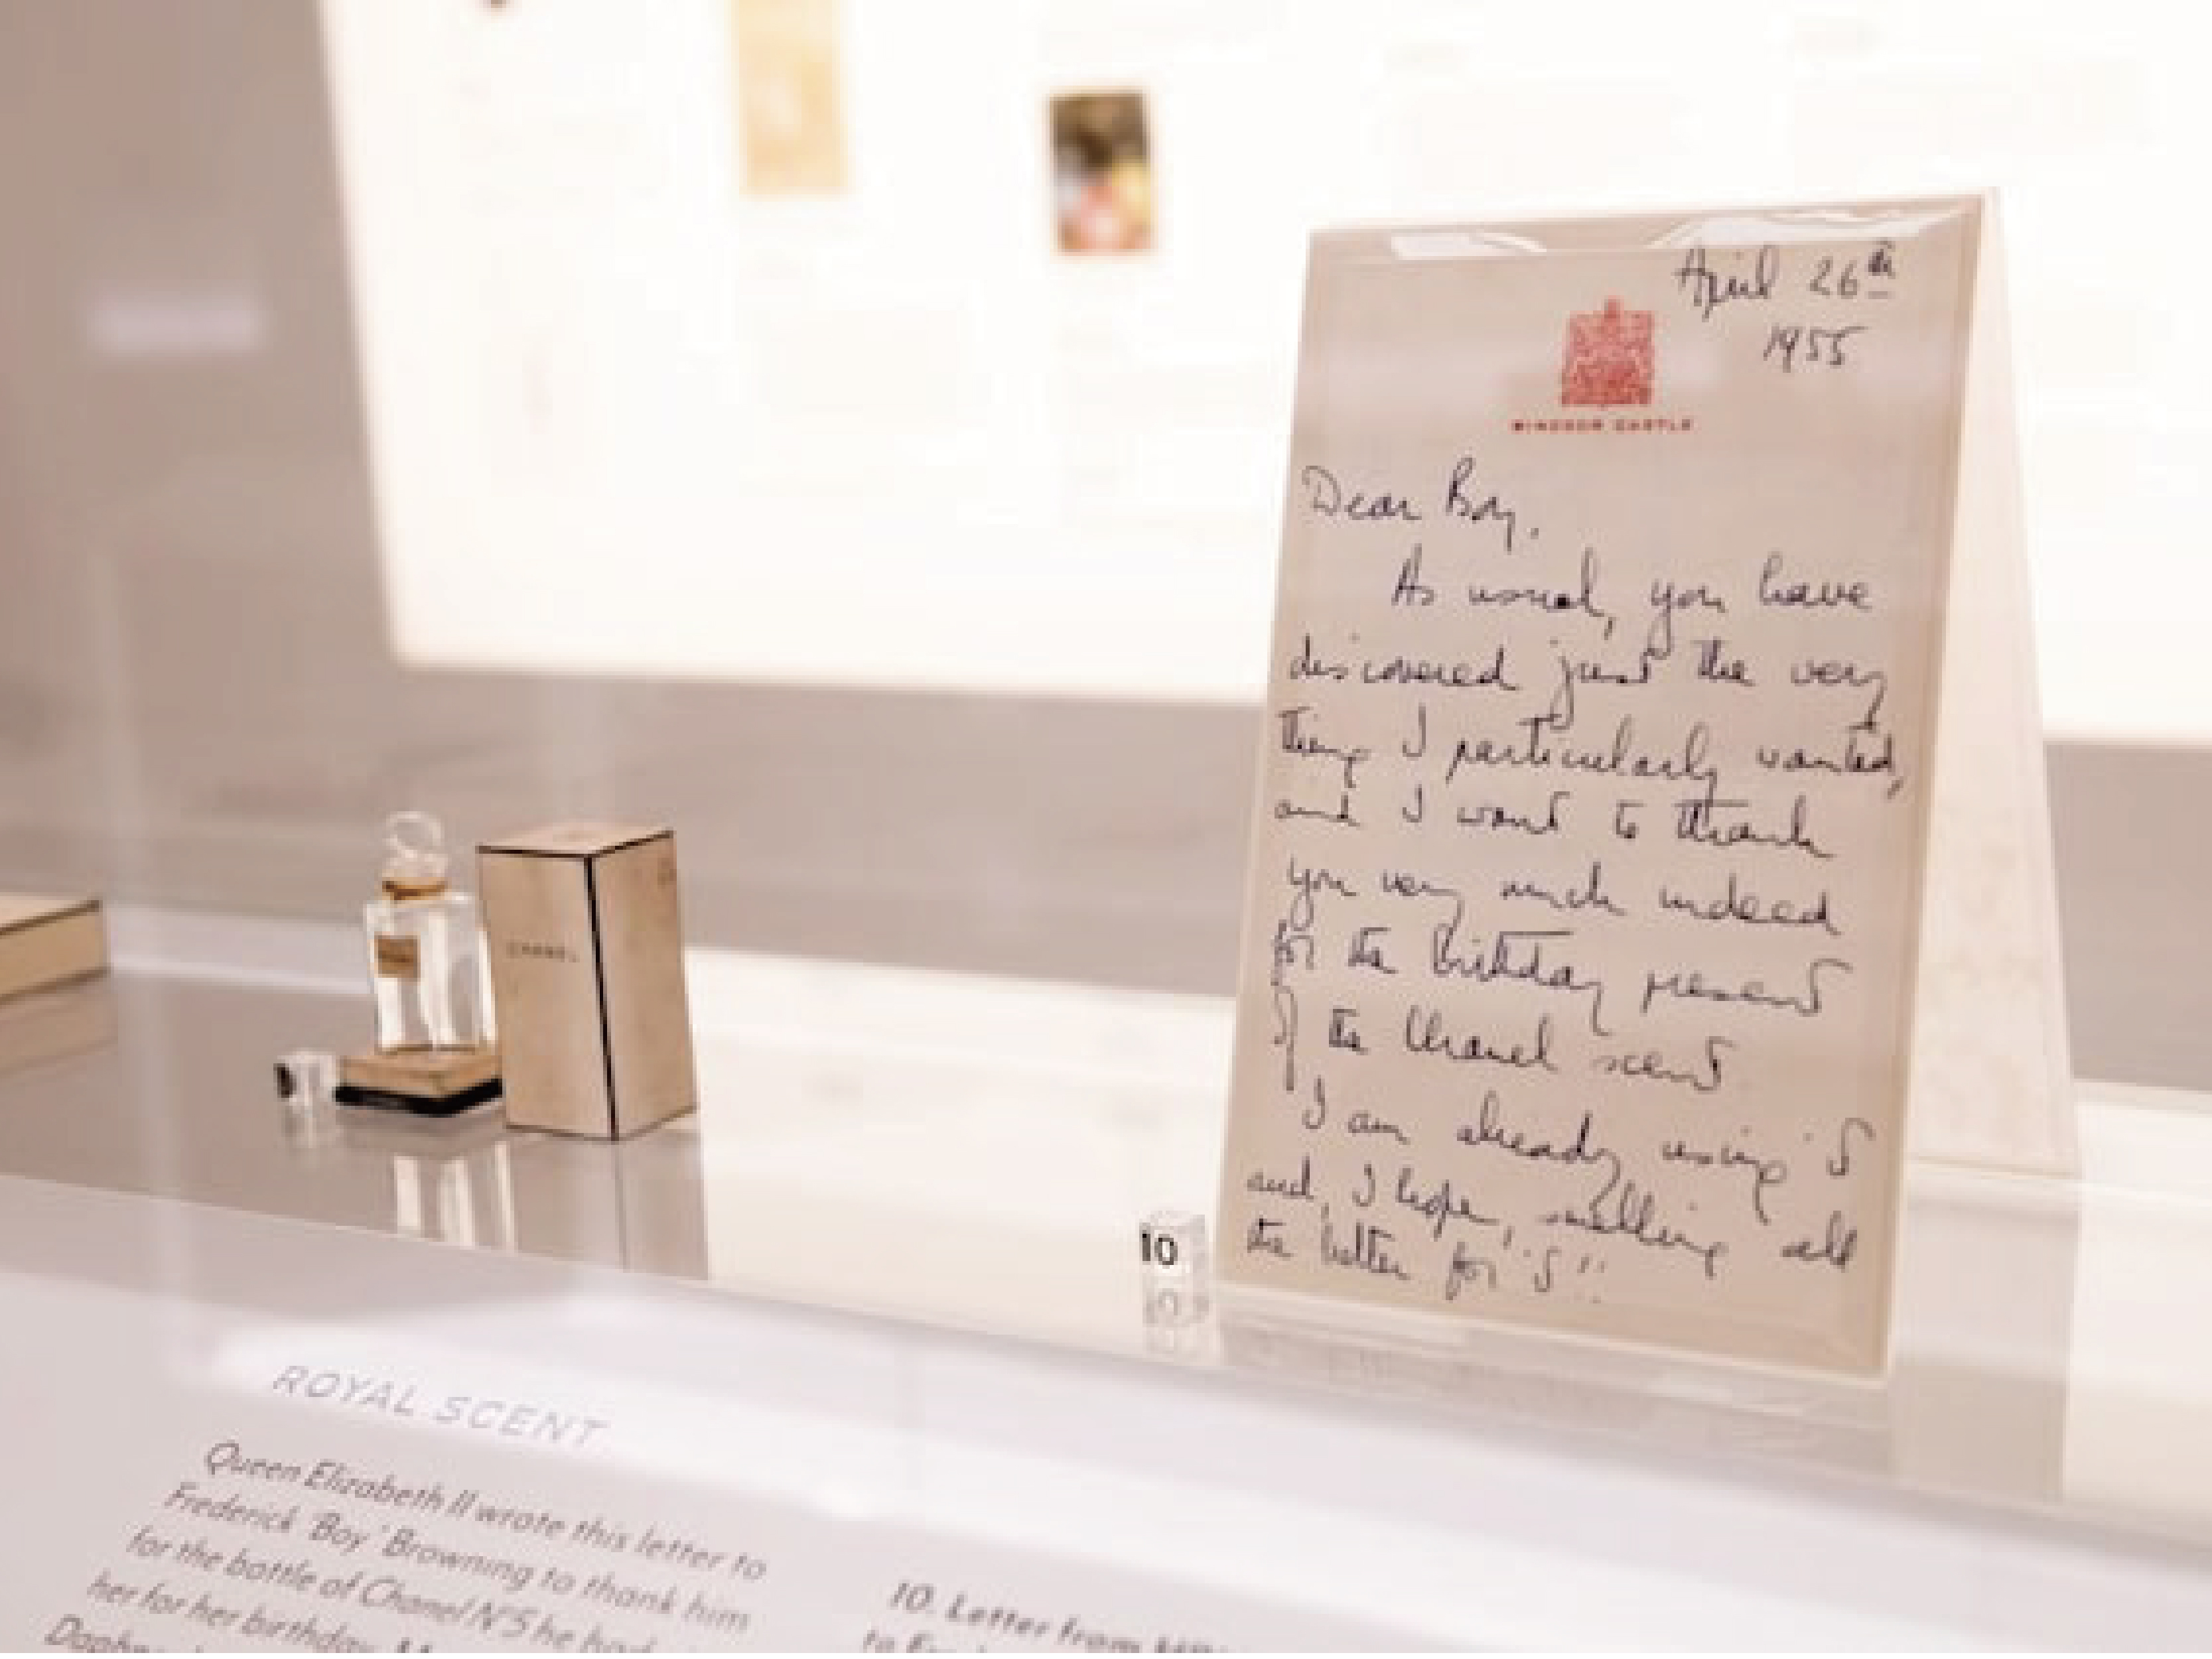 April 26th
1955
WINDSOR CASTLE
Dear Boy,
As usual, you have
discovered just the very
thing I particularly wanted,
and I want to thank
you very much indeed
for the birthday present
of the Chanel scent
I am already using it
and, I hope, smelling all
the better for it!!
CHANEL
10
ROYAL SCENT
Queen Elizabeth II wrote this letter to
Frederick 'Boy' Browning to thank him
for the bottle of Chanel N°5 he had
her for her birthday.
10. Letter from
to